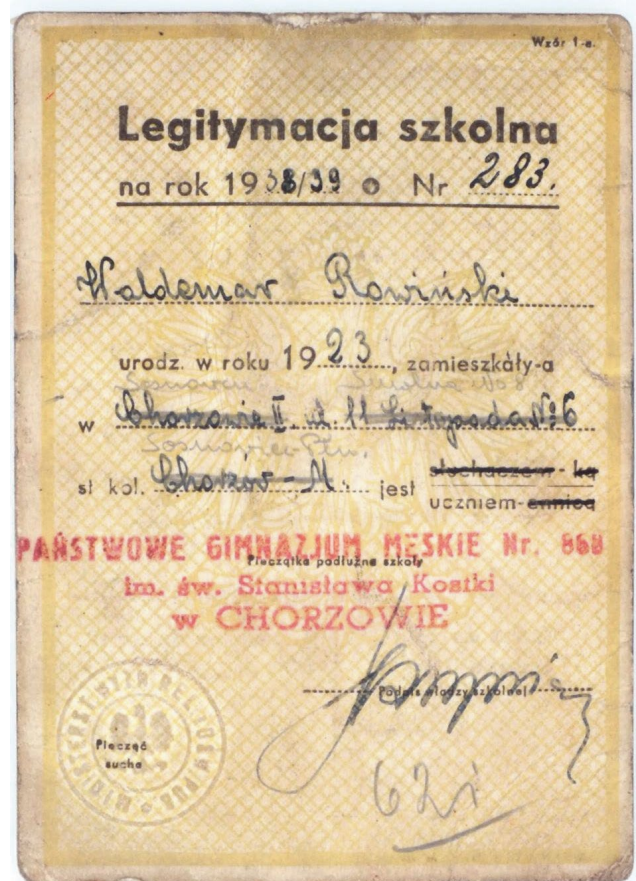 Wzór 1-a.
Legitymacja szkolna
na rok 1938/39 Nr 283.
Waldemar Rowiński
urodz. w roku 1923, zamieszkały-a
Sosnowiec
w Chorzowie II. ul. 11 Listopada № 6
Sosnowiec Płn.
st. kol. Chorzów - M. jest słuchaczem - ką
uczniem-ennicą
PAŃSTWOWE GIMNAZJUM MĘSKIE Nr. 860
Pieczątka podłużna szkoły
im. św. Stanisława Kostki
w CHORZOWIE
Podpis władzy szkolnej
Pieczęć
sucha
62